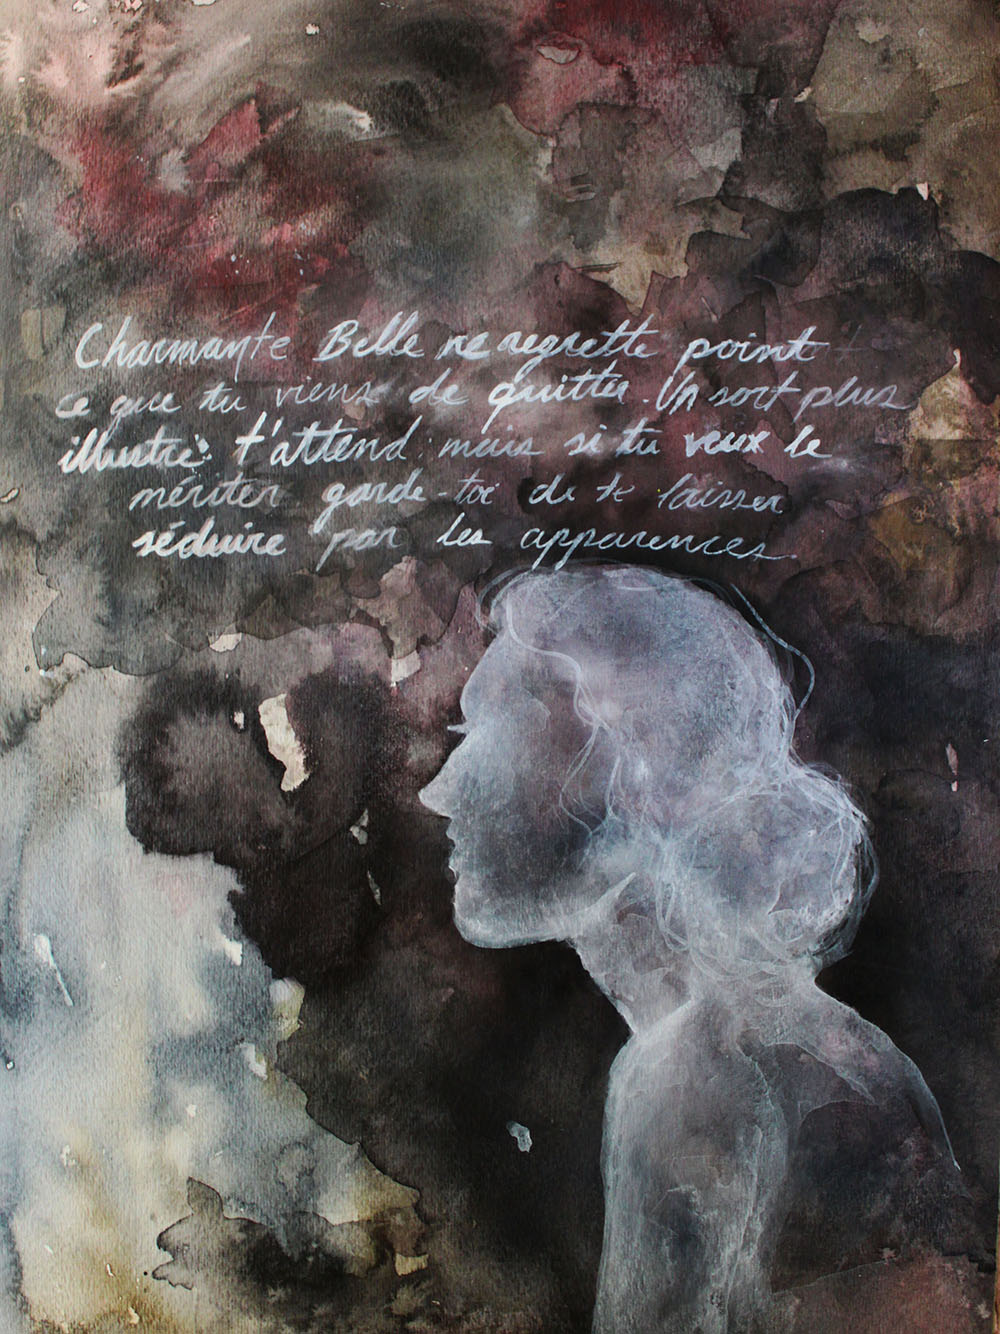 Charmante Belle ne regrette point
ce que tu viens de quitter. Un sort plus
illustre t'attend: mais si tu veux le
mériter garde-toi de te laisser
séduire par les apparences.